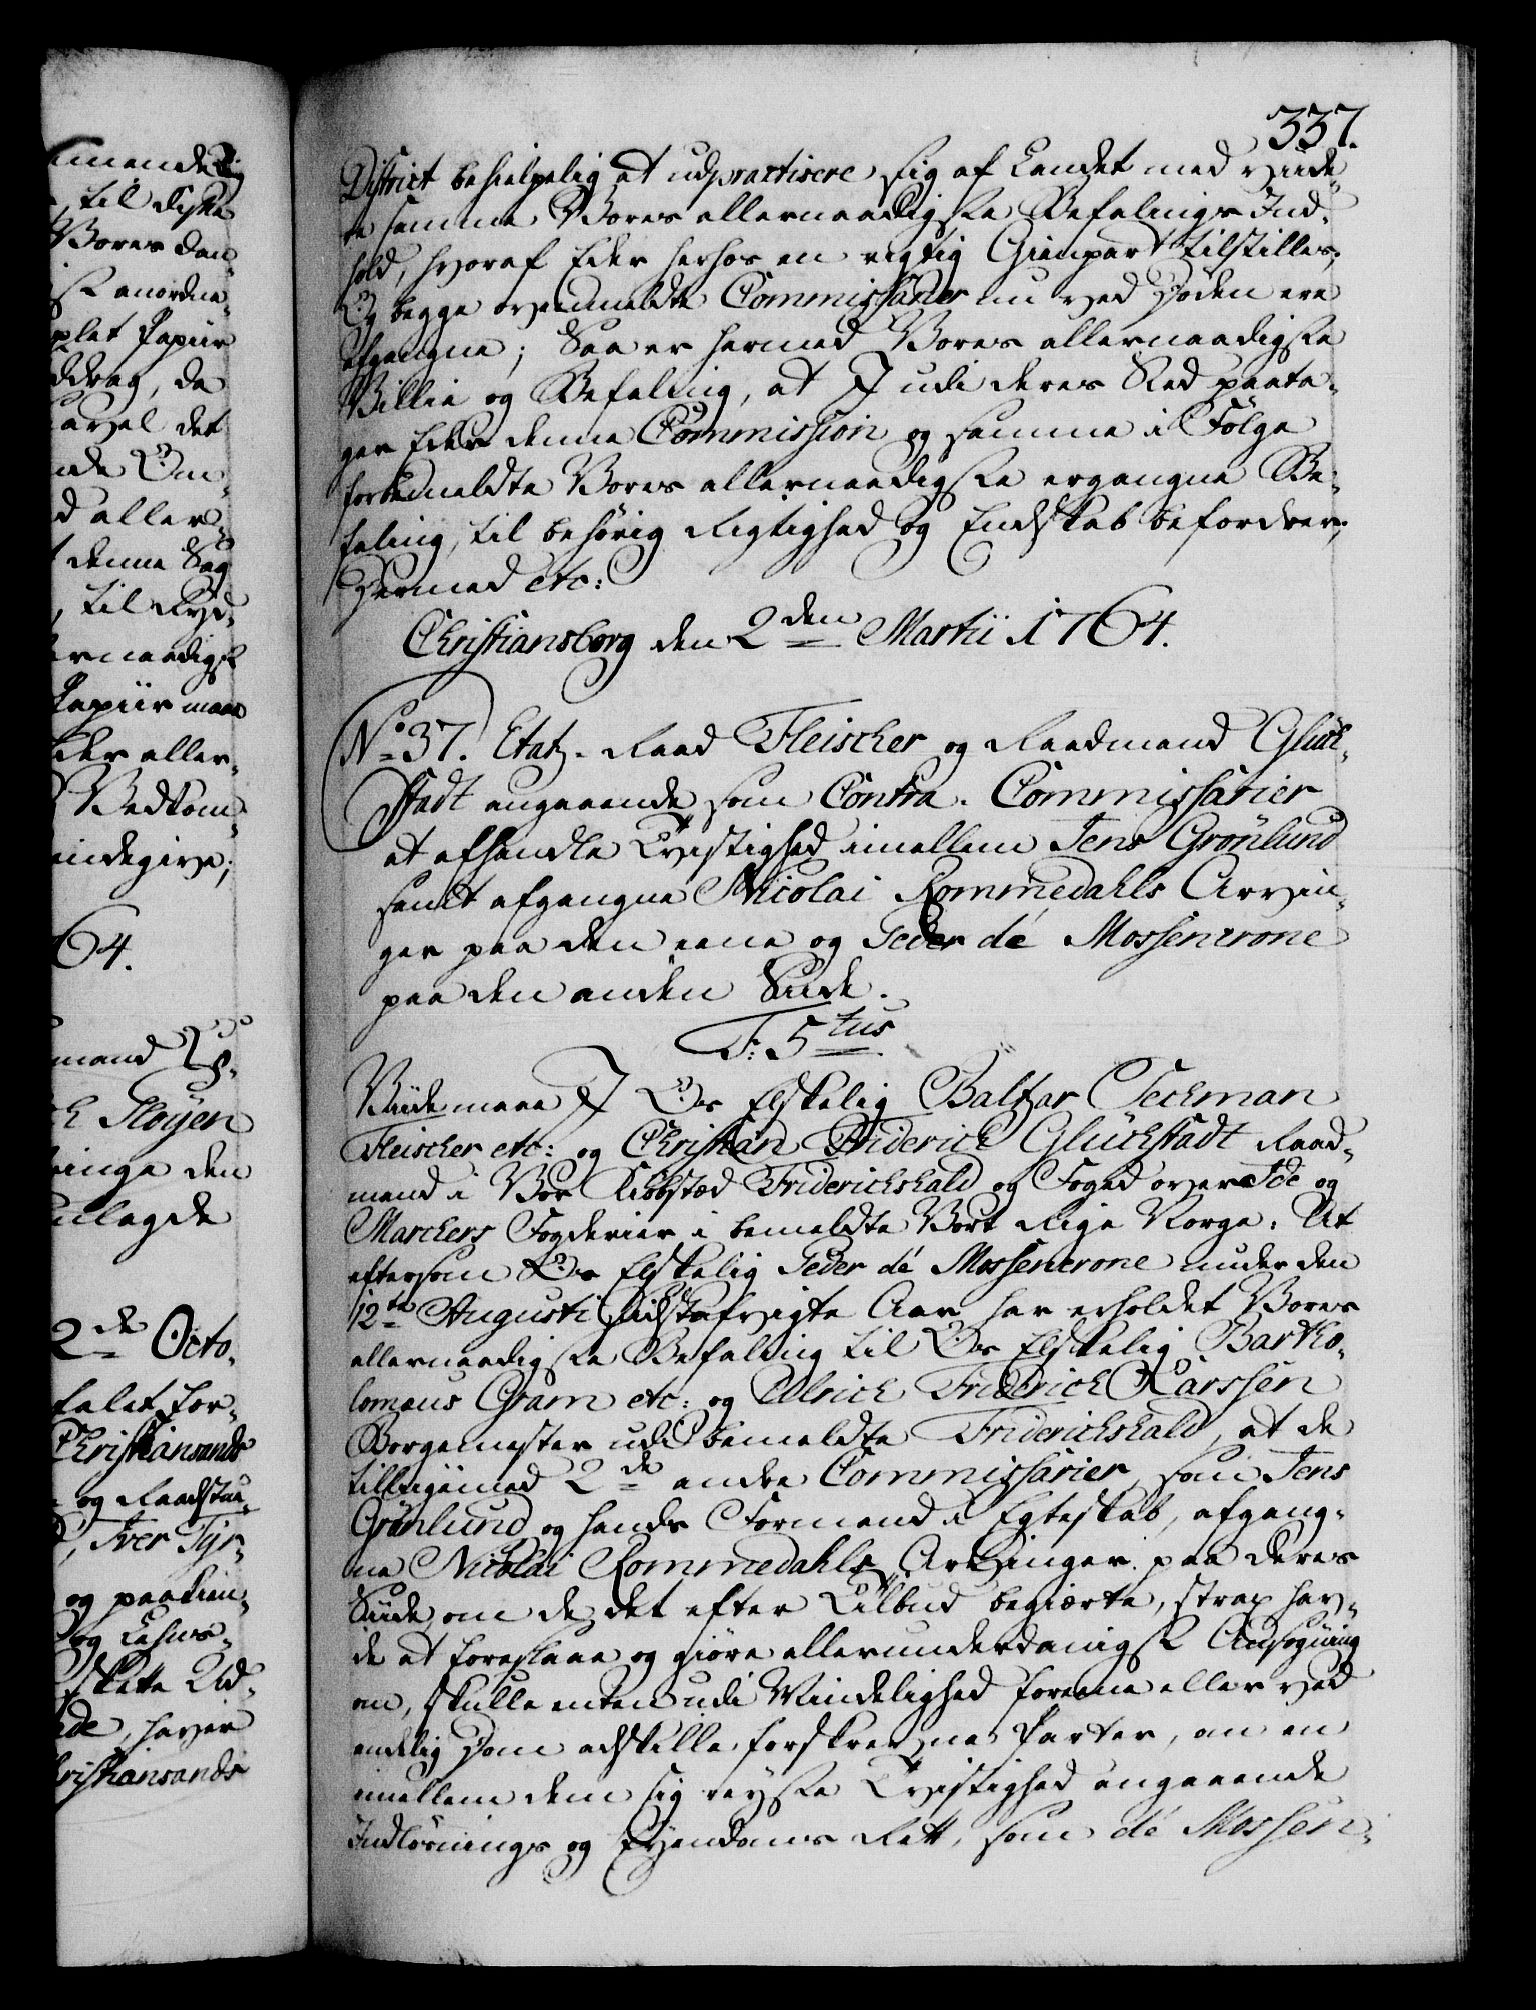 337.
District behielpelig at udpractisere sig af Landet med viide-
re samme Vores allernaadigste Befalings Ind-
hold, hvoraf Eder herhos en rigtig Gienpart tilstilles;
Og begge ovenmeldte Commissarier nu ved Døden ere
afgangne; Saa er hermed Vores allernaadigste
Villie og Befaling, at I udi deres Sted paata-
ger Eder denne Commission og samme i Følge
forbemeldte Vores allernaadigste ergangne Be-
faling, til behörig Rigtighed og Endskab befordrer;
Hermed etc:
Christiansborg den 2den Martii 1764.
No 37. Etatz-Raad Fleischer og Raadmand Glück-
stadt angaaende som Contra-Commissarier
at afhandle Tvistighed imellem Jens Grönlund
samt afgangne Nicolai Rommedahls Arvin-
ger paa den eene og Peder dé Mossencrone
paa den anden Siide.
F: 5tus
Viide maae I Os Elskelig Baltzar Sechman
Fleischer etc: og Christian Friderich Glückstadt Raad-
mand i Vor Kiöbstæd Friderichshald og Foged over Ide og
Marckers Fogderier i bemeldte Vort Rige Norge: At
eftersom Os Elskelig Peder dé Mossencrone under den
12te Augusti sidstafvigte Aar har erholdet Vores
allernaadigste Befaling til Os Elskelig Bartho-
lomæus Gram etc: og Ulrich Friderich Karssen
Borgemester udi bemeldte Friderichshald, at de
tilligemed 2de andre Commissarier, som Jens
Grönlund og hands Formand i Egteskab, afgang-
ne Nicolai Rommedahls Arvinger paa deres
Siide, om de det efter Tilbud begiærte, strax hav-
de at foreslaae og giöre allerunderdanigst Ansøgning
om, skulle enten udi Mindelighed foreene eller ved
endelig Dom adskille forskrevne Parter, om en
imellem dem sig reyste Tvistighed angaaende
Indlösnings og Eyendoms Rett, som dé Mossen-